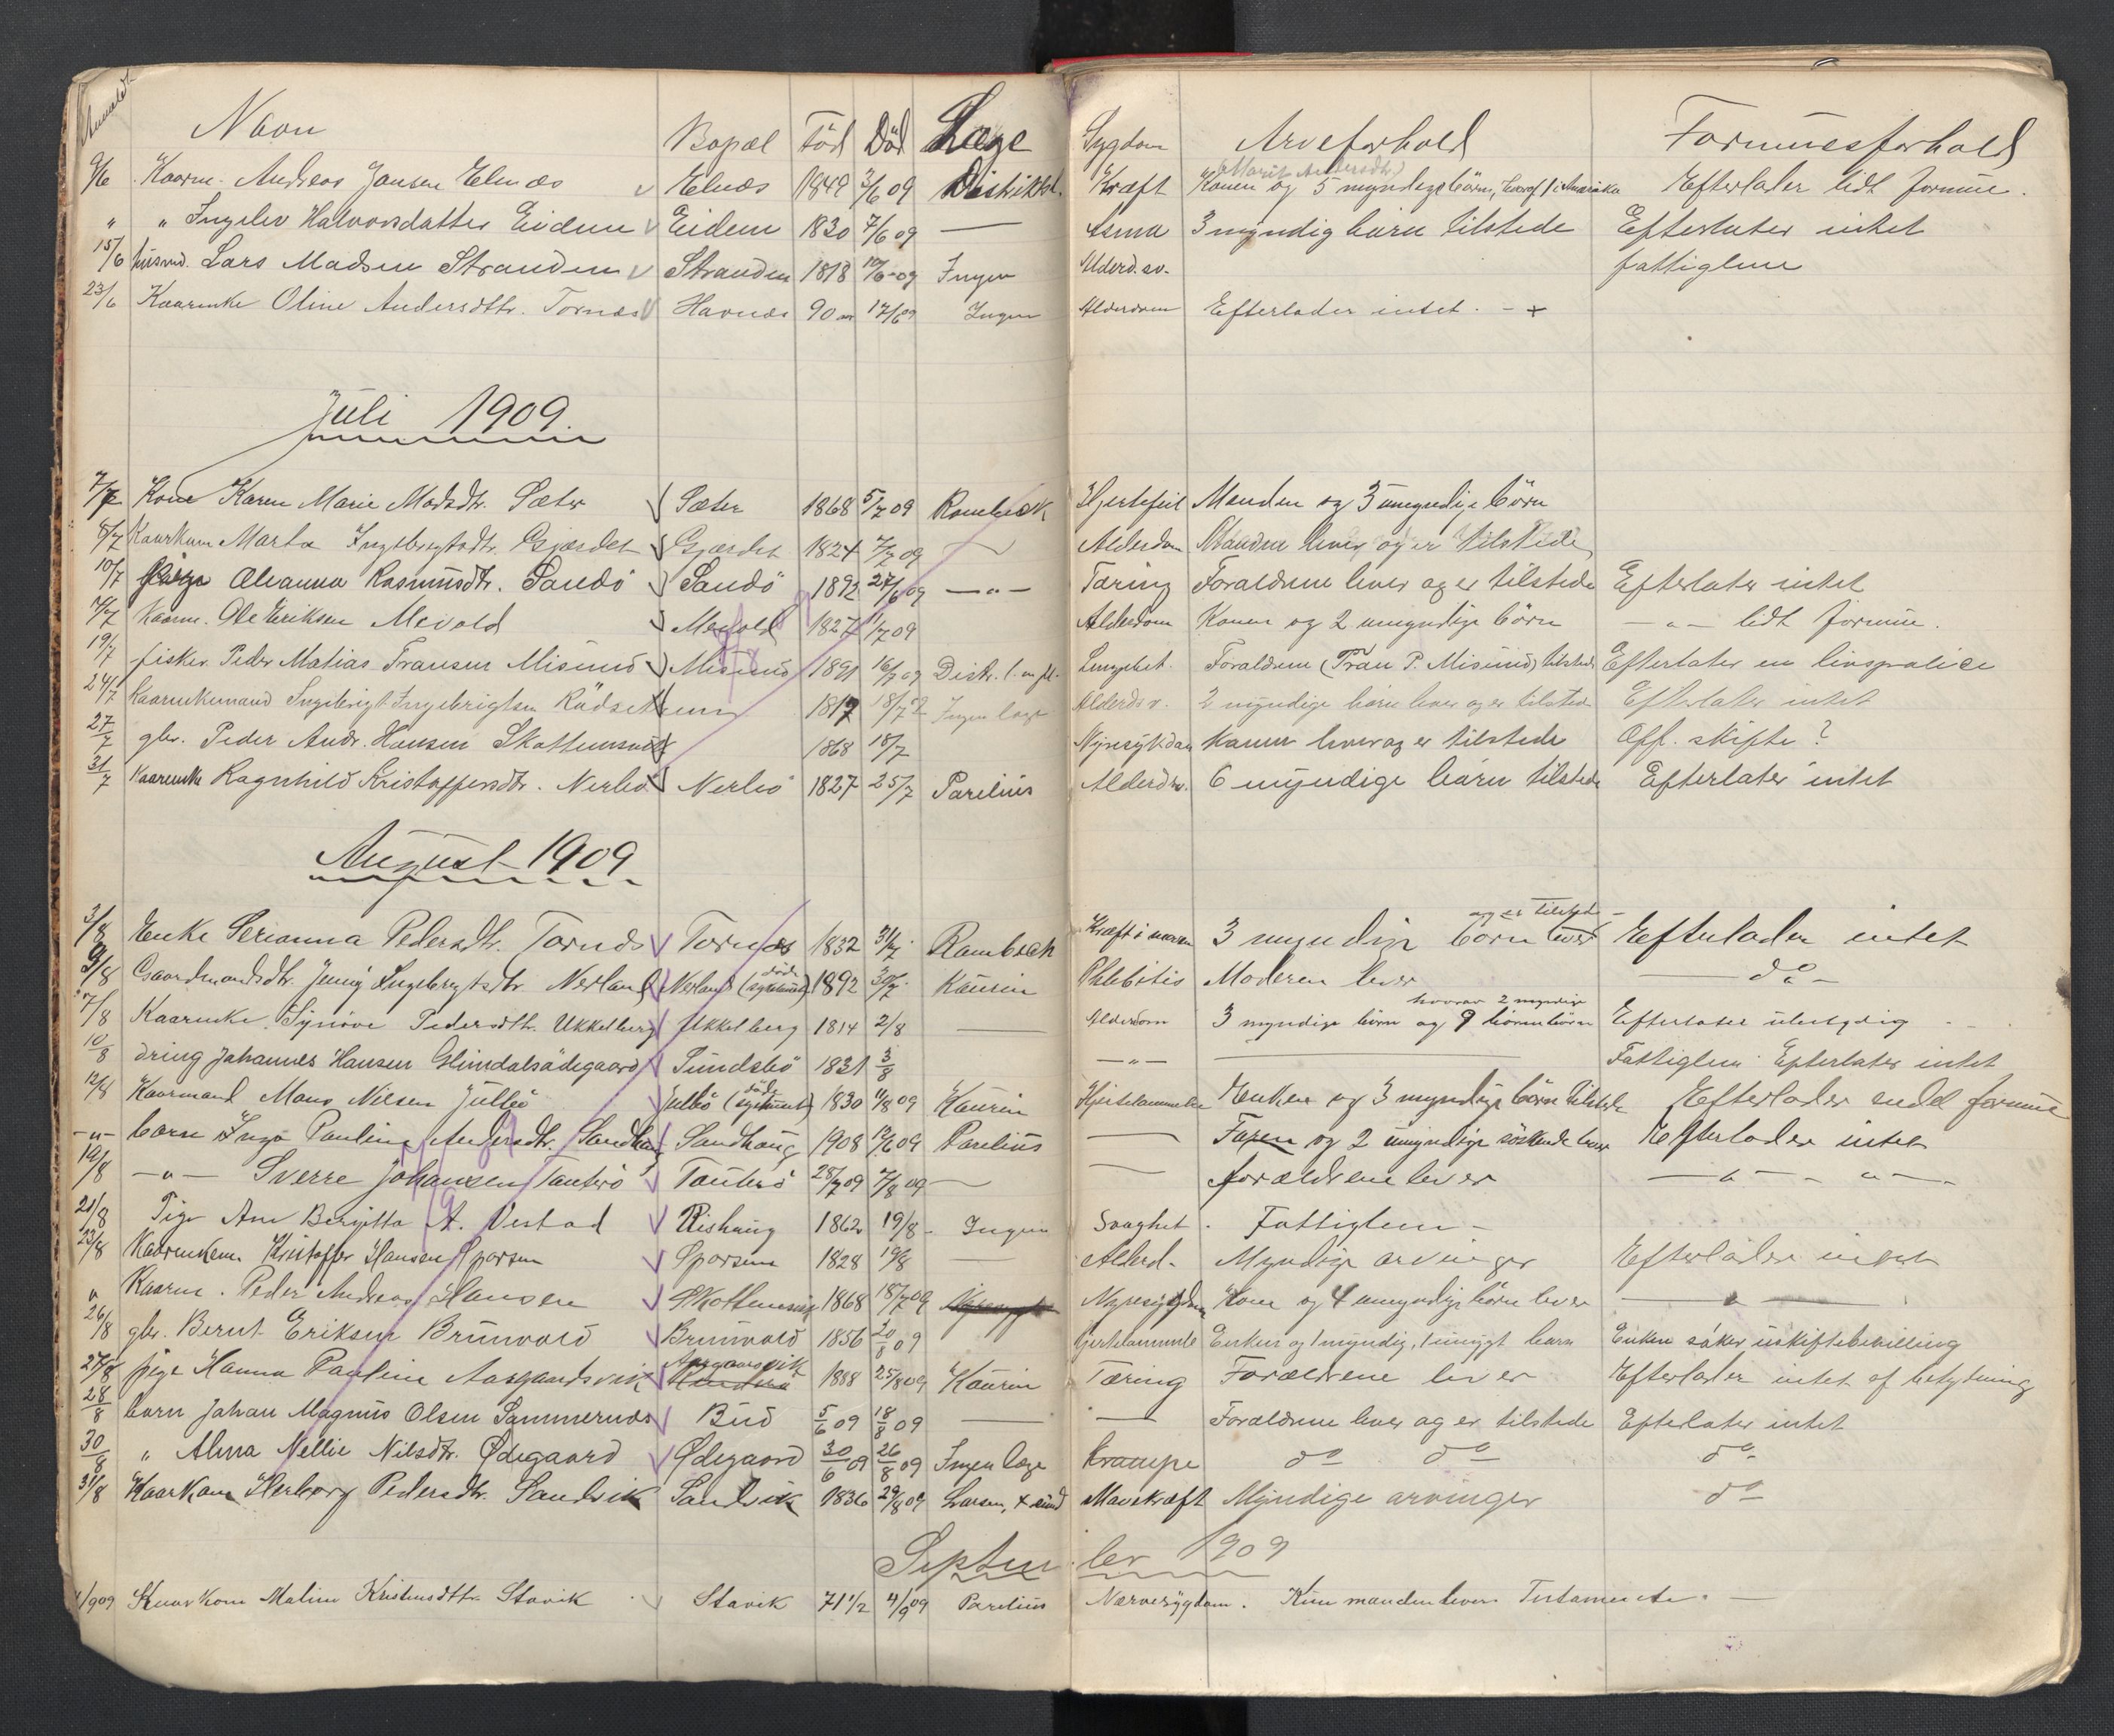 Anmeldt Navn Bopæl Föd Död Læge Sygdom Arveforhold Formuesforhold
9/6 Kaarm. Andreas Jansen Elnæs Elnæs 1849 3/6 09 Distriktsl. Kræft Konen (Marit Andersdtr) og 5 myndige börn, hvoraf 1 i Amerika Efterlader lidt formue.
" " Ingelev Halvorsdatter Eidem Eidem 1830 7/6 09 — Asma 3 myndig barn tilstede Efterlater intet
15/6 husmd. Lars Madsen Stranden Stranden 1818 10/6 09 Ingen Alderd.sv. fattiglem
23/6 Kaarenke Oline Andersdtr. Tornæs Havnæs 90 aar 17/6 09 Ingen Alderdom Efterlader intet. - +
Juli 1909.
7/7 Kone Karen Marie Madsdtr. Sæter Sæter 1868 5/7 09 Rambech Hjertefeil Manden og 3 umyndige börn
8/7 Kaarkone Marta Ingebrigtsdtr. Gjærdet Gjærdet 1824 7/7 09 — Alderdom Manden lever og er tilstede
10/7 Pige Oleanna Rasmusdtr. Sandö Sandö 1892 27/6 09 —"— Tæring Forældrene lever og er tilstede Efterlater intet
Kaarm. Ole Eriksen Mevold Mevold 1827 11/7 09 Alderdom Konen og 2 umyndige börn —"— lidt formue.
19/7 fisker Peder Matias Fransen Misund Misund 1891 16/7 09 Distr. l. Forældrene (Fran P. Misund) tilstede Efterlater en livspolice
24/7 Kaarenkemand Ingebrigt Ingebrigtsen Rödsetreem 1817 18/7 Ingen læge Alderds. 2 myndige barn lever og er tilstede Efterlater intet
27/7 gbr. Peder Andr. Hansen Skottemsvik 1868 18/7 Nyresykdom Konen lever og er tilstede Off. skifte?
31/7 Kaarenke Ragnhild Kristoffersdtr. Nerbö Nerbö 1827 25/7 Parelius Alderdom. 6 myndige barn tilstede Efterlater intet
August 1909
3/8 Enke Serianna Pedersdtr. Tornæs Tornæs 1832 31/7 Rambech Kræft i maven 3 myndige börn lever og er tilstede Efterlader intet
9/8 Gaardmandsdtr. Jenny Ingebrigtsdtr. Nerland Nerland (döde sygehuset) 1892 30/7 Kaurin Phlebitis Moderen lever — do —
7/8 Kaarenke Synöve Pedersdtr. Ukkelberg Ukkelberg 1814 2/8 — Alderdom 3 myndige börn og 9 börnebörn hvorav 2 myndige Efterlater ubetydelig
10/8 dring Johannes Hansen Glimdalsödegaard Sundsbö 1831 3/8 —"— — Fattiglem Efterlater intet
12/8 Kaarmand Mons Nilsen Julbö Julbö (döde sygehuset) 1830 11/8 09 Kaurin Hjertelammelse Enken og 3 myndige börn tilstede Efterlader endel formue
—"— barn Inga Pauline Andersdtr. Sandhaug Sandhaug 1908 12/6 09 Parelius — Faren og 2 umyndige söskende lever Efterlader intet
19/8 —"— Sverre Johansen Tautrö Tautrö 28/7 09 7/8 09 — — forældrene lever —"— —"—
21/8 Pige Ane Berytta A. Vestad Rishaug 1862 19/8 Ingen Svaghet. Fattiglem —
23/8 Kaarenkem. Kristoffer Hansen Sporsem Sporsem 1828 19/8 — Alderd. Myndige arvinger Efterlader intet
" Kaarm. Peder Andreas Hansen Skottemsvig 1868 18/7 09 Nyresygdom Kone og 4 umyndige börn lever —"—
26/8 gbr. Bernt Eriksen Brunvold Brunvold 1856 20/8 09 Hjertelammelse Enken og 1 myndig, 1 umynd. barn Enken söker uskiftebevilling
27/8 pige Hanna Pauline Aasgaardsvik Aasgaardsvik 1888 25/8 09 Kaurin Tæring Forældrene lever Efterlader intet af betydning
28/8 barn Johan Magnus Olsen Sammernæs Bud 5/6 09 18/8 09 — — Forældrene lever og er tilstede Efterlater intet
30/8 " Alma Nellie Nilsdtr. Ødegaard Ødegaard 30/6 09 26/8 09 Ingen læge Krampe do do do
31/8 Kaarkone Herborg Pedersdtr. Sandvik Sandvik 1836 29/8 09 Larsen, Krsund Mavekræft Myndige arvinger do
September 1909
Kaarkone Maline Kristensdtr. Stavik Stavik 71 1/2 4/9 09 Parelius Nervesygdom. Kun manden lever. Testamente. —